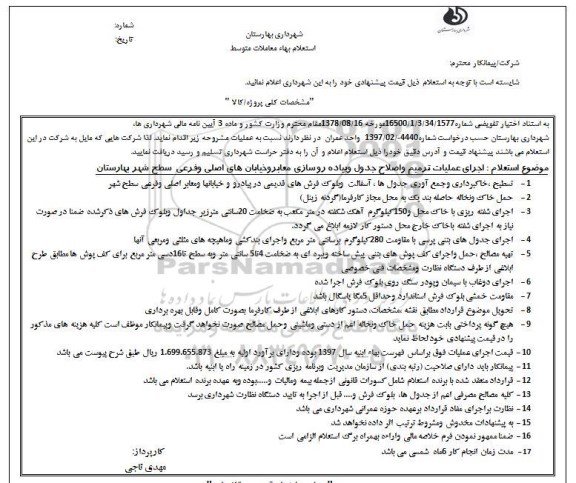 شماره:
تاریخ:
شهرداری بهارستان
استعلام بهاء معاملات متوسط
شرکت/پیمانکار محترم:
شایسته است با توجه به استعلام ذیل قیمت پیشنهادی خود را به این شهرداری اعلام نمائید.
"مشخصات کلی پروژه/کالا"
به استناد اختیار تفویضی شماره 16500/1/3/34/1577 مورخه 1378/08/16 مقام محترم وزارت کشور و ماده 3 آیین نامه مالی شهرداری ها،
شهرداری بهارستان حسب درخواست شماره 4440-1397/02/ واحد عمران در نظر دارند نسبت به عملیات مشروحه زیر اقدام نماید. لذا شرکت هایی که مایل به شرکت در این
استعلام می باشند پیشنهاد قیمت و آدرس دقیق خود را ذیل استعلام اعلام و آن را به دفتر حراست شهرداری تسلیم و رسید دریافت نمایید.
موضوع استعلام: اجرای عملیات ترمیم واصلاح جدول وپیاده روسازی معابروخیابان های اصلی وفرعی سطح شهر بهارستان
1 - تسطیح ،خاکبرداری وجمع آوری جدول ها ، آسفالت وبلوک فرش های قدیمی در پیادرو و خیابانها ومعابر اصلی وفرعی سطح شهر
2 - حمل خاک ونخاله حاصله بند یک به محل مجاز کارفرما(گردنه زینل)
3 - اجرای شفته ریزی با خاک محل و150کیلوگرم آهک شکفته در متر مکعب به ضخامت 20سانتی مترزیر جداول وبلوک فرش های ذکرشده ضمنا در صورت
نیاز به اجرای شفته باخاک خارج محل دستور کار لازمه ابلاغ می گردد.
4 - اجرای جدول های بتنی پرسی با مقاومت 280کیلوگرم برسانتی متر مربع واجرای بندکشی وماهیچه های مثلثی ومربعی آنها
5 - تهیه مصالح ،حمل واجرای کف پوش های بتنی پیش ساخته ویبره ای به ضخامت 4تا5 سانتی متر وبه سطح 16تا دسی متر مربع برای کف پوش ها مطابق طرح
ابلاغی از طرف دستگاه نظارت ومشخصات فنی خصوصی
6 - اجرای دوغاب با سیمان وپودر سنگ روی بلوک فرش اجرا شده
7 - مقاومت خمشی بلوک فرش استاندارد وحداقل 5مگا پاسگال باشد
8 - تحویل موضوع قرارداد مطابق نقشه ،مشخصات، دستور کارهای ابلاغی از طرف کارفرما بصورت کامل وقابل بهره برداری
9 - هیچ گونه پرداختی بابت هزینه حمل خاک ونخاله اعم از دستی وماشینی وحمل مصالح صورت نخواهد گرفت وپیمانکار موظف است کلیه هزینه های مذکور
را در قیمت پیشنهادی خود لحاظ نماید
10 - قیمت اجرای عملیات فوق براساس فهرست بهاء ابنیه سال 1397 بوده ودارای برآورد اولیه به مبلغ 1.699.655.873 ریال طبق شرح پیوست می باشد
11 - پیمانکار باید دارای صلاحیت (رتبه بندی) از سازمان مدیریت وبرنامه ریزی کشور در زمینه راه یا ابنیه باشد.
12 - قرارداد منعقد شده با برنده استعلام شامل کسورات قانونی ازجمله بیمه ومالیات و.....بوده وبه عهده برنده استعلام می باشد
13 - کلیه مصالح مصرفی اعم از جدول ها، بلوک فرش و..... قبل از اجرا به تایید دستگاه نظارت شهرداری برسد
14 - نظارت براجرای مفاد قرارداد برعهده حوزه عمرانی شهرداری می باشد
15 - به پیشنهادات مخدوش ومشروط ترتیب اثر داده نخواهد شد
16 - ضمنا ممهور نمودن فرم خلاصه مالی وارائه بهمراه برگ استعلام الزامی است
17 - مدت زمان انجام کار 6ماه شمسی می باشد
کارپرداز:
مهدی تاجی